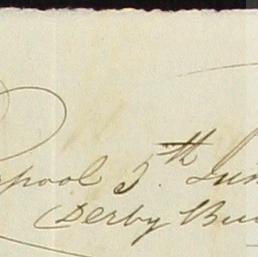 rpool 5th Jun
Derby Bui